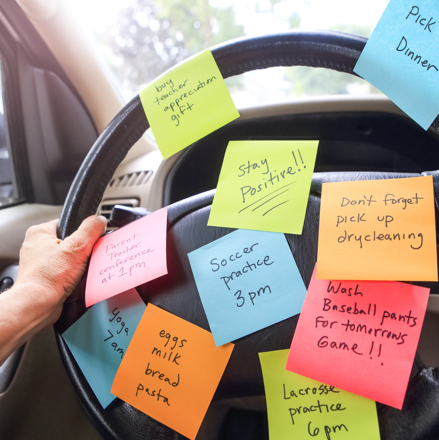 Pick
Dinner
buy
teacher
appreciation
gift
Stay
Positive!!
Don't forget
pick up
drycleaning
Parent
Teacher
conference
at 1pm
Soccer
practice
3pm
Wash
Baseball pants
For tomorrows
Game!!
Yoga
7am
eggs
milk
bread
pasta
Lacrosse
practice
6pm